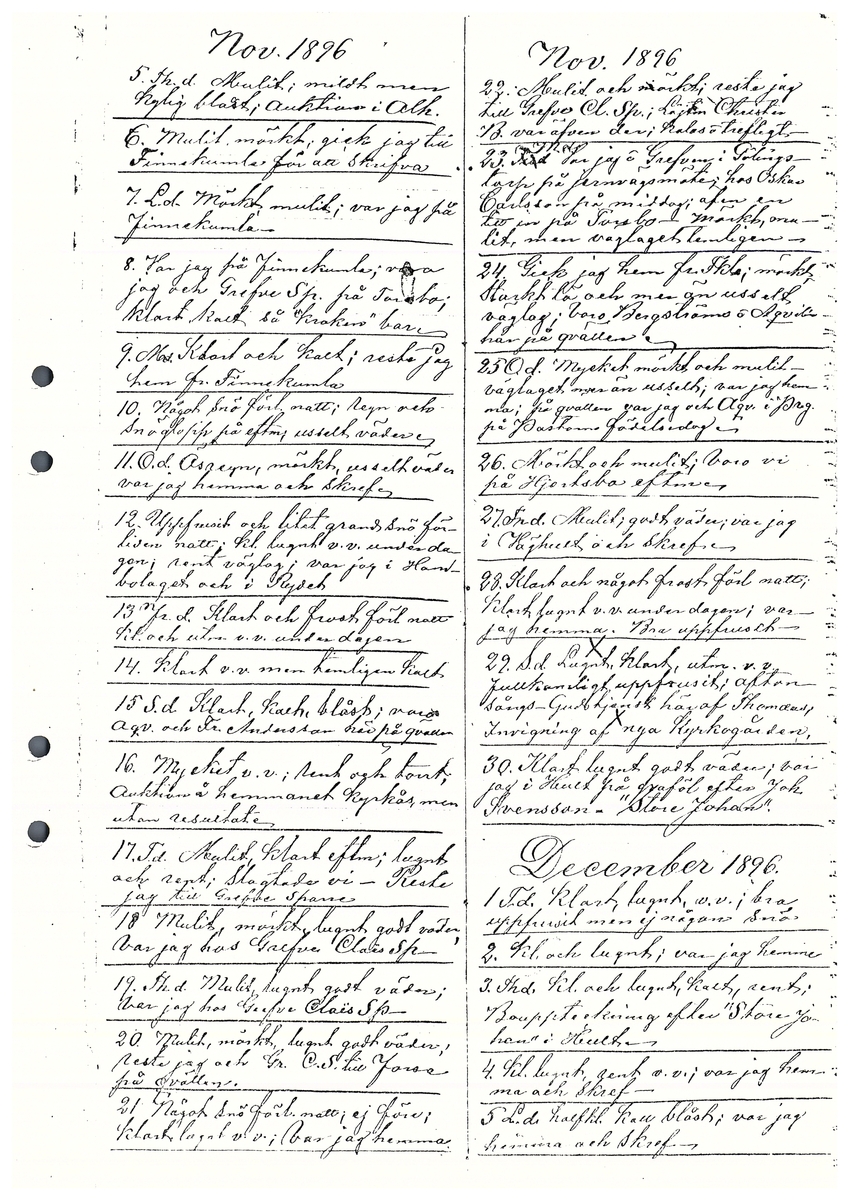 Nov. 1896
5. Th.d. Mulit; mildt men
kylig blåst; auktion i Alk.
6. Mulit, mörkt; gick jag till
Finnekumla för att skrifva
7. L.d. Mörkt, mulit; var jag på
Finnekumla
8. Var jag på Finnekumla;
jag och Grefve Sp. på Torsbo;
klart kalt så "kraken" bar
9. Md. Klart och kalt; reste jag
hem fr. Finnekumla
10. Något snö förl. natt; regn och
snöglopp på eftm, uselt väder
11. O.d. Ösregn, mörkt, uselt väder
var jag hemma och skref
12. Uppfrusit och litet grand snö för-
liden natt; kl. lugnt v.v. under da-
gen; rent väglag; var jag i Han-
bolaget och i Rydet
13 Fr.d. Klart och frost förl natt
kl. och utm. v.v. under dagen
14. Klart v.v. men temligen kalt
15 S.d. Klart, kalt, blåst; voro
Agv. och Fr. Andersson här på qvällen
16. Mycket v.v.; rent och torrt,
Auktion å hemmanet Kyrkås, men
utan resultat
17. T.d. Mulit, klart eftm; lugnt
och rent; slagtade vi — Reste
jag till Grefve Sparre
18 Mulit, mörkt, lugnt godt väder,
Var jag hos Grefve Claës Sp
19. Th.d. Mulit, lugnt godt väder;
Var jag hos Grefve Claës Sp
20. Mulit, mörkt, lugnt godt väder;
reste jag och Gr. C.S. till Forsa
på qvällen.
21 Något snö förl. natt; ej före;
Klart, lugnt v.v.; Var jag hemma
Nov. 1896
22. Mulit och mörkt; reste jag
till Grefve Cl. Sp.; Löjtn Christer
B. var äfven der; kalas ö trefligt
23. Md Var jag ö Grefven i Tölings-
torp på jernvägsmöte; hos Oskar
Carlsson på middag; afven en
tur in på Torsbo — Mörkt, mu-
lit, men väglaget temligen
24. Gick jag hem fr. Fkla; mörkt,
starkt tö och mer än uselt
väglag; voro Bergströms ö Agvilin
här på qvällen
25 O.d. Mycket mörkt och mulit
väglaget mer än uselt; var jag hem-
ma; på qvällen var jag och Agv. i Prg.
på Pastorns födelsedag
26. Mörkt och mulit; Voro vi
på Hjortsbo eftm
27. Frd. Mulit; godt väder; var jag
i Höghult ö och skref
28. Klart och något frost förl. natt;
klart lugnt v.v. under dagen; var
jag hemma. Bra uppfrusit
29. S.d. Lugnt, klart, utm. v.v.
fullkomligt uppfrusit; afton-
sångs-Gudstjenst här af Thomæus,
Invigning af nya Kyrkogården,
30. Klart lugnt godt väder; var
jag i Hult på graföl efter Joh.
Svensson — "Store Johan".
December 1896.
1 T.d. Klart lugnt, v.v.; bra
uppfrusit men ej någon snö
2. Kl. och lugnt; var jag hemma
3. Thd. Kl. och lugnt, kalt, rent;
Bouppteckning efter "Store Jo-
han" i Hult
4. Kl. lugnt, rent v.v.; var jag hem-
ma och skref
5 L.d. halfkl. kall blåst; var jag
hemma och skref